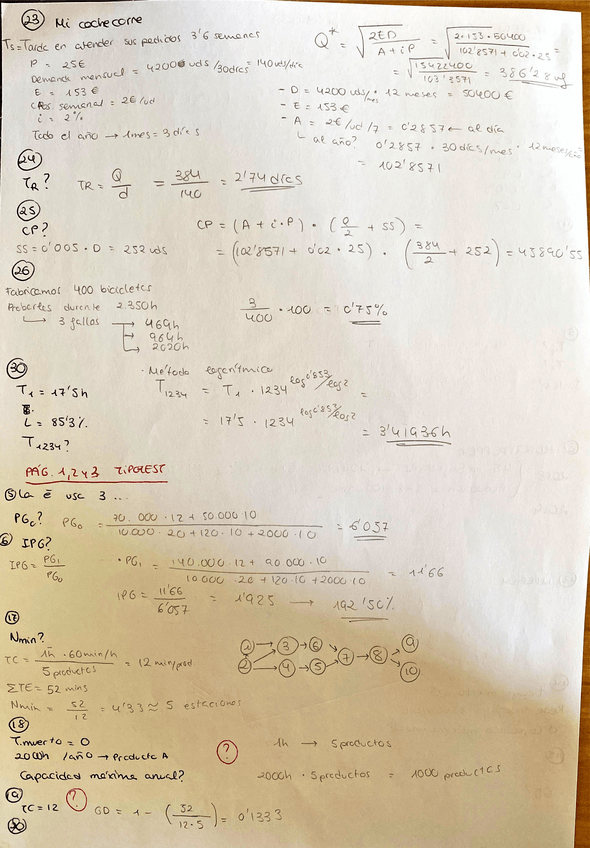 23 Mi cochecorre
Ts = Tarda en atender sus pedidos 3'6 semanas
P = 25€
Demanda mensual = 4200 uds /30días = 140 uds/día
E = 153 €
Pos. semanal = 2€/ud
i = 2%
Todo el año → 1 mes = 30 días
Q* = √(2ED / A + i·P) = √(2·153·50400 / 102'8571 + 0'02·25) =
= √(15422400 / 103'3571) = 386'28 uds
- D = 4200 uds/mes · 12 meses = 50400 €
- E = 153 €
- A = 2€/ud /7 = 0'2857 ← al día
↳ al año? 0'2857 · 30 días/mes · 12 meses/año
= 102'8571
24
TR? TR = Q/d = 384/140 = 2'74 días
25
CP? CP = (A + i·P) · (Q/2 + SS) =
SS = 0'005 · D = 252 uds = (102'8571 + 0'02 · 25) · (384/2 + 252) = 45890'55
26
Fabricamos 400 bicicletas
Probarlas durante 2.350h
↳ 3 fallos → 469h
→ 964h
→ 2020h
3/400 · 100 = 0'75%
30
· Método logarítmico
T1 = 17'5h
L = 85'3%
T1234?
T1234 = T1 · 1234 log0'853/log2 =
= 17'5 · 1234 log0'853/log2 = 3'41936h
PÁG. 1, 2 y 3 TIPOTEST
5 La E usa 3 ...
PG0? PG0 = 70.000·12 + 50.000·10 / 10.000·20 + 120·10 + 2000·10 = 6'057
6 IPG?
IPG = PG1/PG0 · PG1 = 140.000·12 + 90.000·10 / 10.000·20 + 120·10 + 2000·10 = 11'66
IPG = 11'66/6'057 = 1'925 → 192'50%
17
Nmin?
TC = 1h · 60min/h / 5 productos = 12 min/prod
ΣTE = 52 mins
Nmin = 52/12 = 4'33 ≈ 5 estaciones
1 3 6 9
2 4 5 7 8 10
18
T.muerto = 0
2000h /año → Producto A
Capacidad máxima anual?
?
1h → 5 productos
2000h · 5 productos = 1000 productos
19
TC = 12 ? GD = 1 - (52 / 12·5) = 0'1333